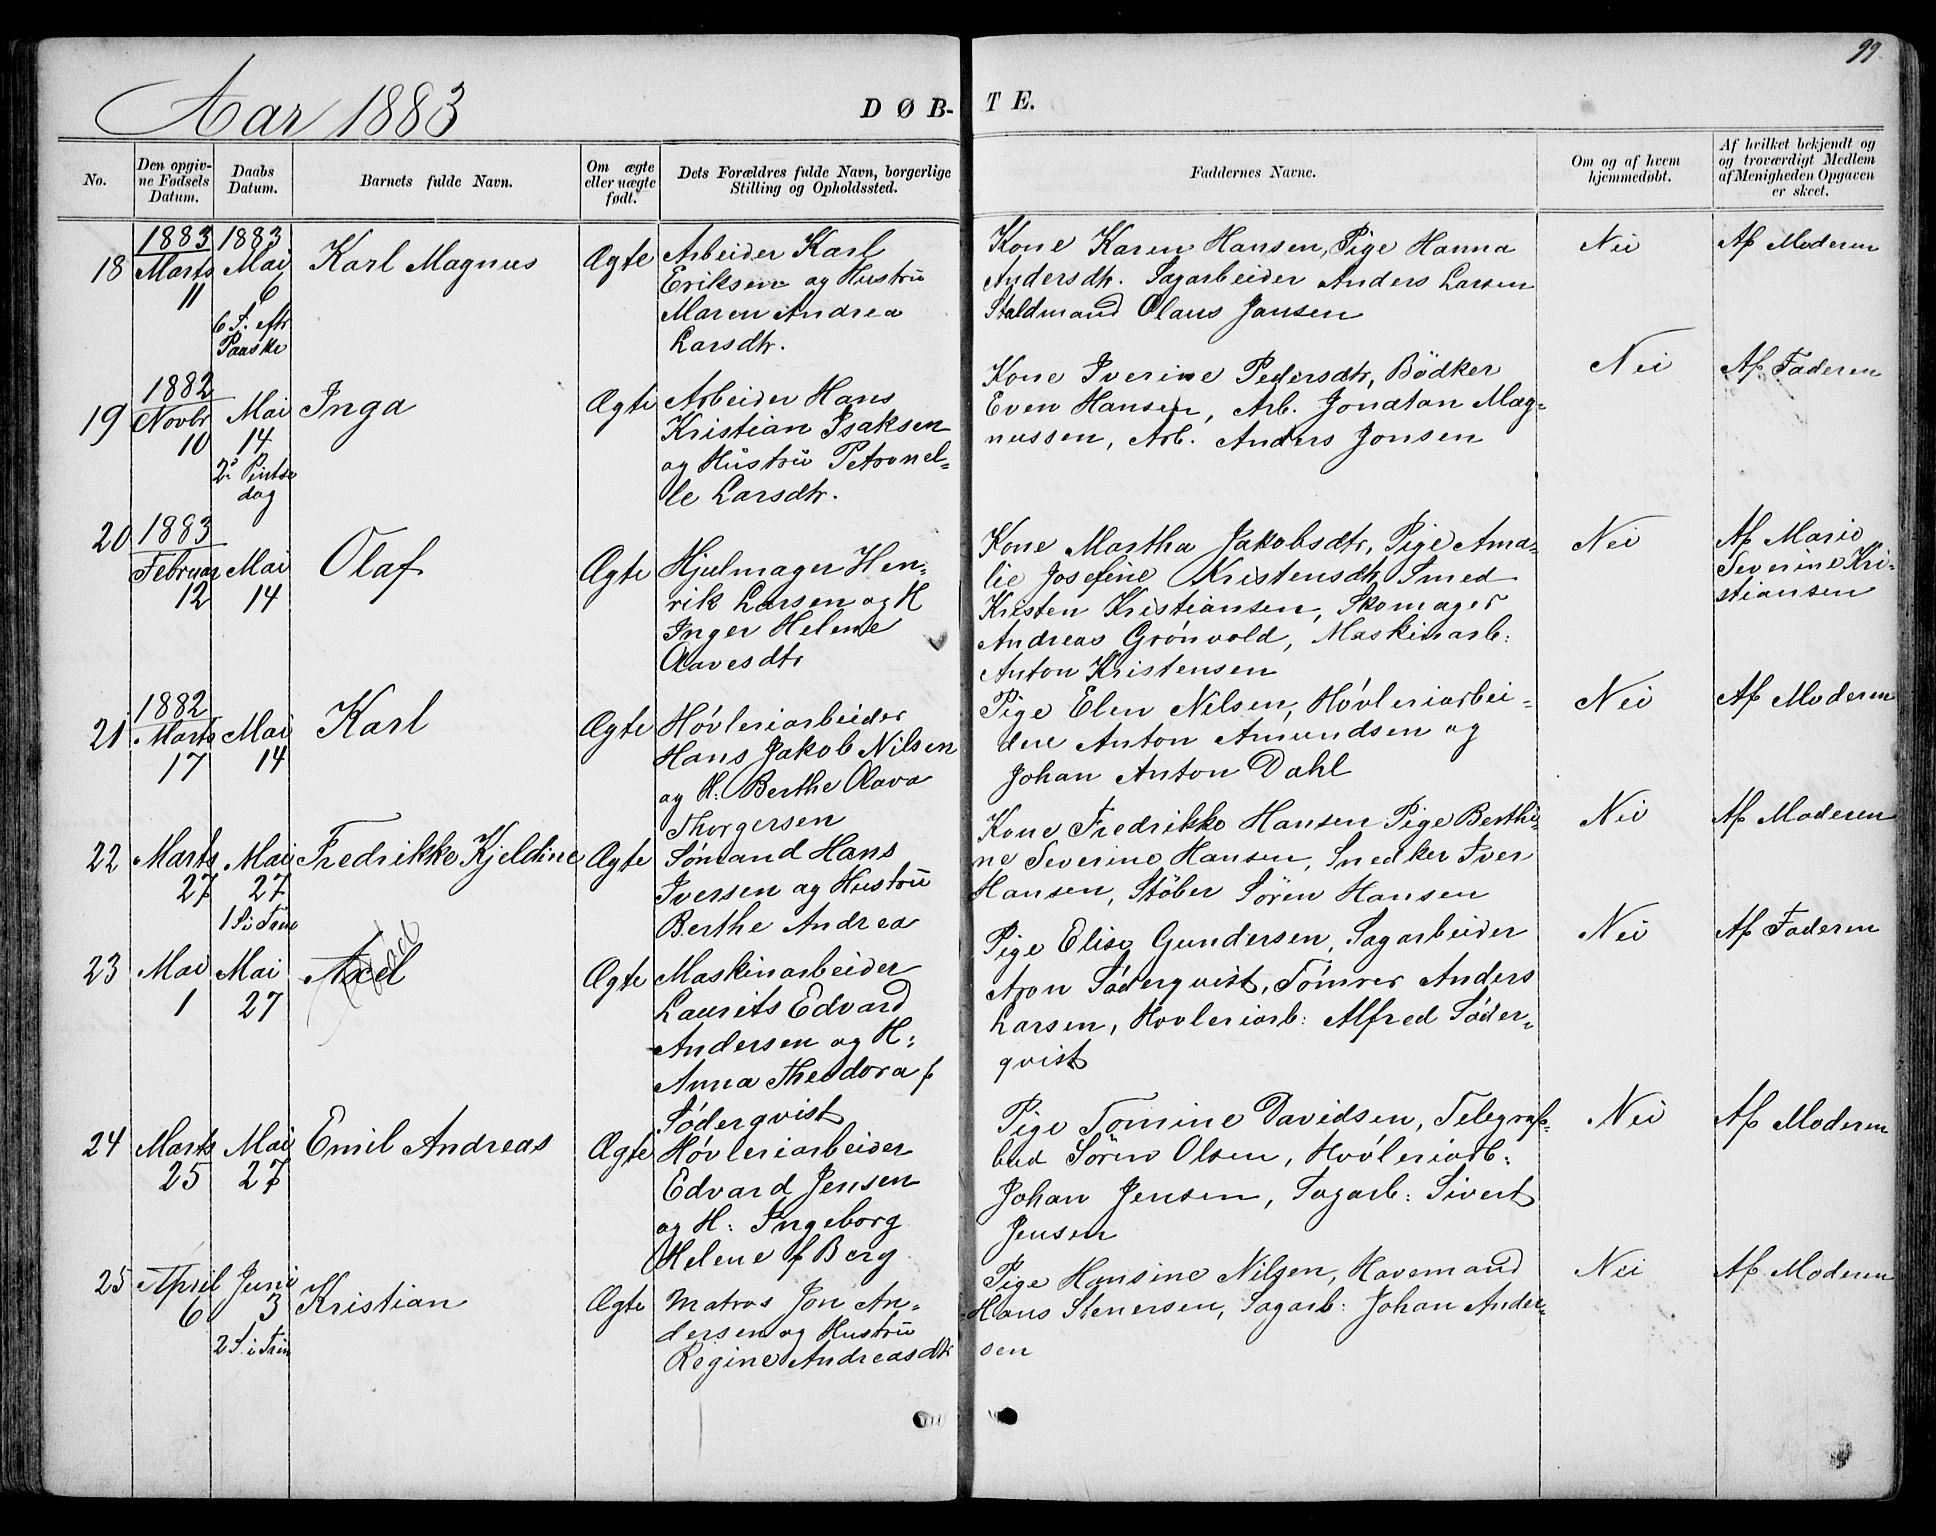 99
Aar 1883
DØB-
TE.
No.
Den opgiv-
ne Fødsels
Datum.
Daabs
Datum.
Barnets fulde Navn.
Om ægte
eller uægte
født.
Dets Forældres fulde Navn, borgerlige
Stilling og Opholdssted.
Faddernes Navne.
Om og af hvem
hjemmedøbt.
Af hvilket bekjendt og
og troværdigt Medlem
af Menigheden Opgaven
er skeet.
18
1883
Marts
11
1883
Mai
6
6 S. eftr
Paaske
Karl Magnus
Ægte
Arbeider Karl
Eriksen og Hustru
Maren Andrea
Larsdtr.
Kone Karen Hansen, Pige Hanna
Andersdtr. Sagarbeider Anders Larsen
Staldmand Olaus Jansen
Nei
Af Moderen
19
1882
Novbr
10
Mai
14
2. Pintse
dag
Inga
Ægte
Arbeider Hans
Kristian Isaksen
og Hustru Petronel-
le Larsdtr.
Kone Iverine Pedersdtr, Bödker
Even Hansen, Arb. Jonatan Mag-
nussen, Arb. Anders Jonsen
Nei
Af Faderen
20
1883
Februar
12
Mai
14
Olaf
Ægte
Hjulmager Hen-
rik Larsen og H
Inger Helene
Olavesdtr
Kone Martha Jakobsdtr, Pige Ama-
lie Josefine Kristensdtr, Smed
Kristen Kristiansen, Skomager
Andreas Grónvold, Maskinarb:
Anton Kristensen
Nei
Af Marie
Severine Kri-
stiansen
21
1882
Marts
17
Mai
14
Karl
Ægte
Hóvleriarbeider
Hans Jakob Nilsen
og H: Berthe Olava
Thorgersen
Pige Elen Nilsen, Hóvleriarbei-
dere Anton Amundsen og
Johan Anton Dahl
Nei
Af Moderen
22
Marts
27
Mai
27
1 S. i Trin
Fredrikke Kjeldine
Ægte
Sómand Hans
Iversen og Hustru
Berthe Andrea
Kone Fredrikke Hansen Pige Berthi-
ne Severine Hansen, Snedker Iver
Hansen, Stöber Sören Hansen
Nei
Af Moderen
23
Mai
1
Mai
27
Axel
Ægte
Maskinarbeider
Laurits Edvard
Andersen og H:
Anna Theodora f
Söderqvist
Pige Elise Gundersen, Sagarbeider
Aron Söderqvist, Tómrer Anders
Larsen, Hovleriarb: Alfred Söder-
qvist
Nei
Af Faderen
24
Marts
25
Mai
27
Emil Andreas
Ægte
Hóvleriarbeider
Edvard Jensen
og H: Ingeborg
Helene f Berg
Pige Tomine Davidsen, Telegraf-
bud Sören Olsen, Hóvleriarb:
Johan Jensen, Sagarb: Sivert
Jensen
Nei
Af Moderen
25
April
6
Juni
3
2 S. i Trin
Kristian
Ægte
Matros Jon An-
dersen og Hustru
Regine Andreasdtr
Pige Hansine Nilsen, Havemand
Hans Stenersen, Sagarb: Johan Ander-
sen
Nei
Af Moderen